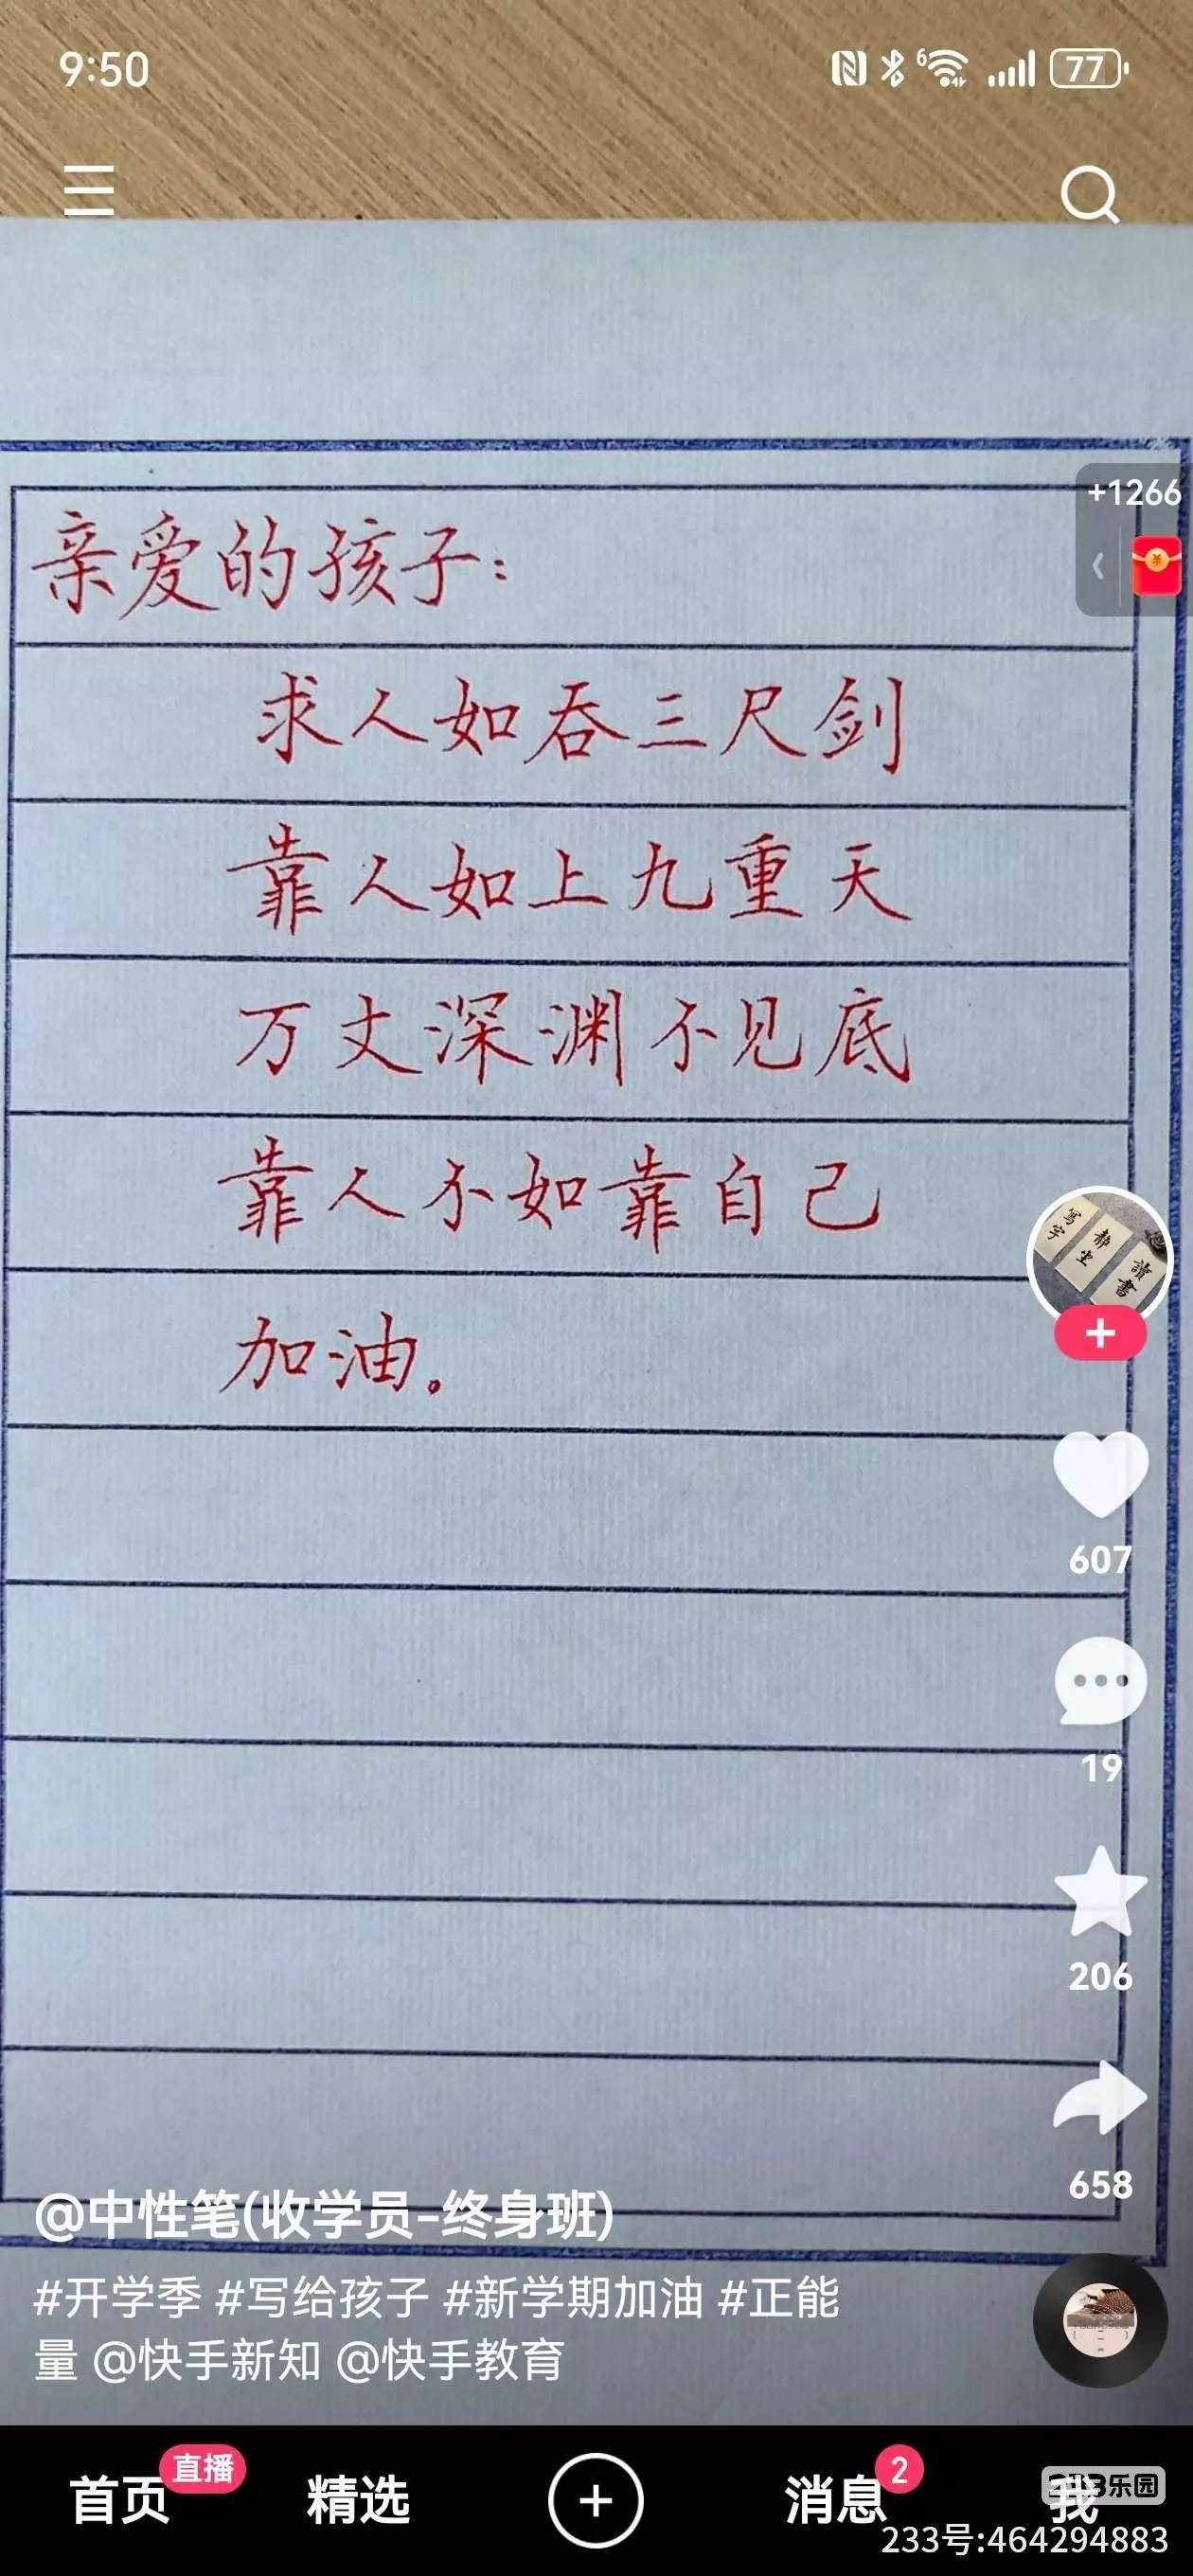 9:50
6
77
+1266
亲爱的孩子：
求人如吞三尺剑
靠人如上九重天
万丈深渊不见底
靠人不如靠自己
加油。
寫字
静坐
讀書
607
19
206
658
@中性笔(收学员-终身班)
#开学季 #写给孩子 #新学期加油 #正能
量 @快手新知 @快手教育
首页
直播
精选
消息
2
我
233乐园
233号:464294883